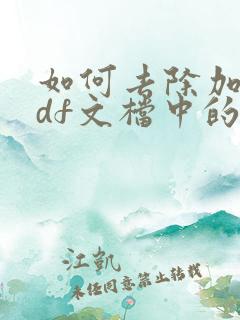 如何去除加
df文档中的
江凯
未经同意禁止转载